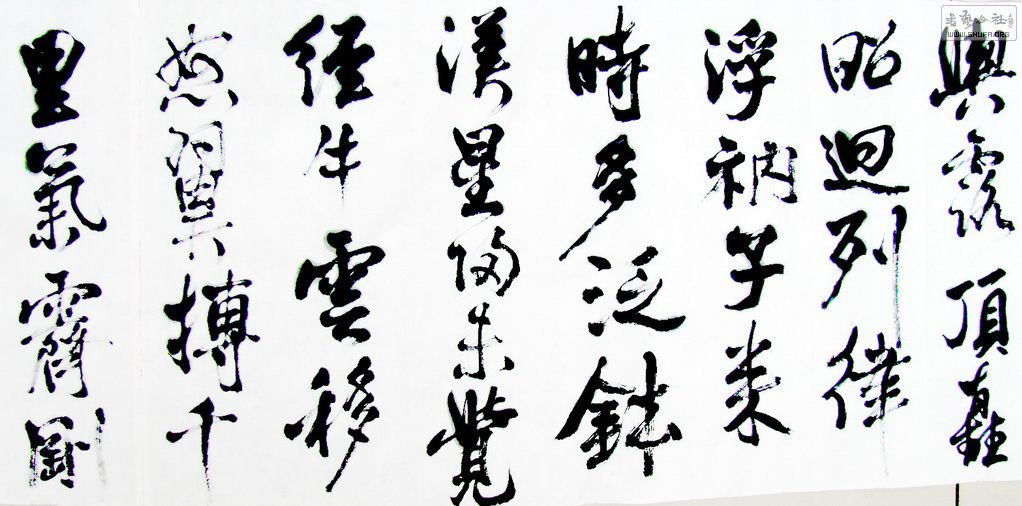 露頂
昭迴列
浮衲子来
時多泛鉢
漢星歸未覺
經牛雲移
怒翼搏千
里氣霽剛
書藝公社
WWW.SHUFA.ORG